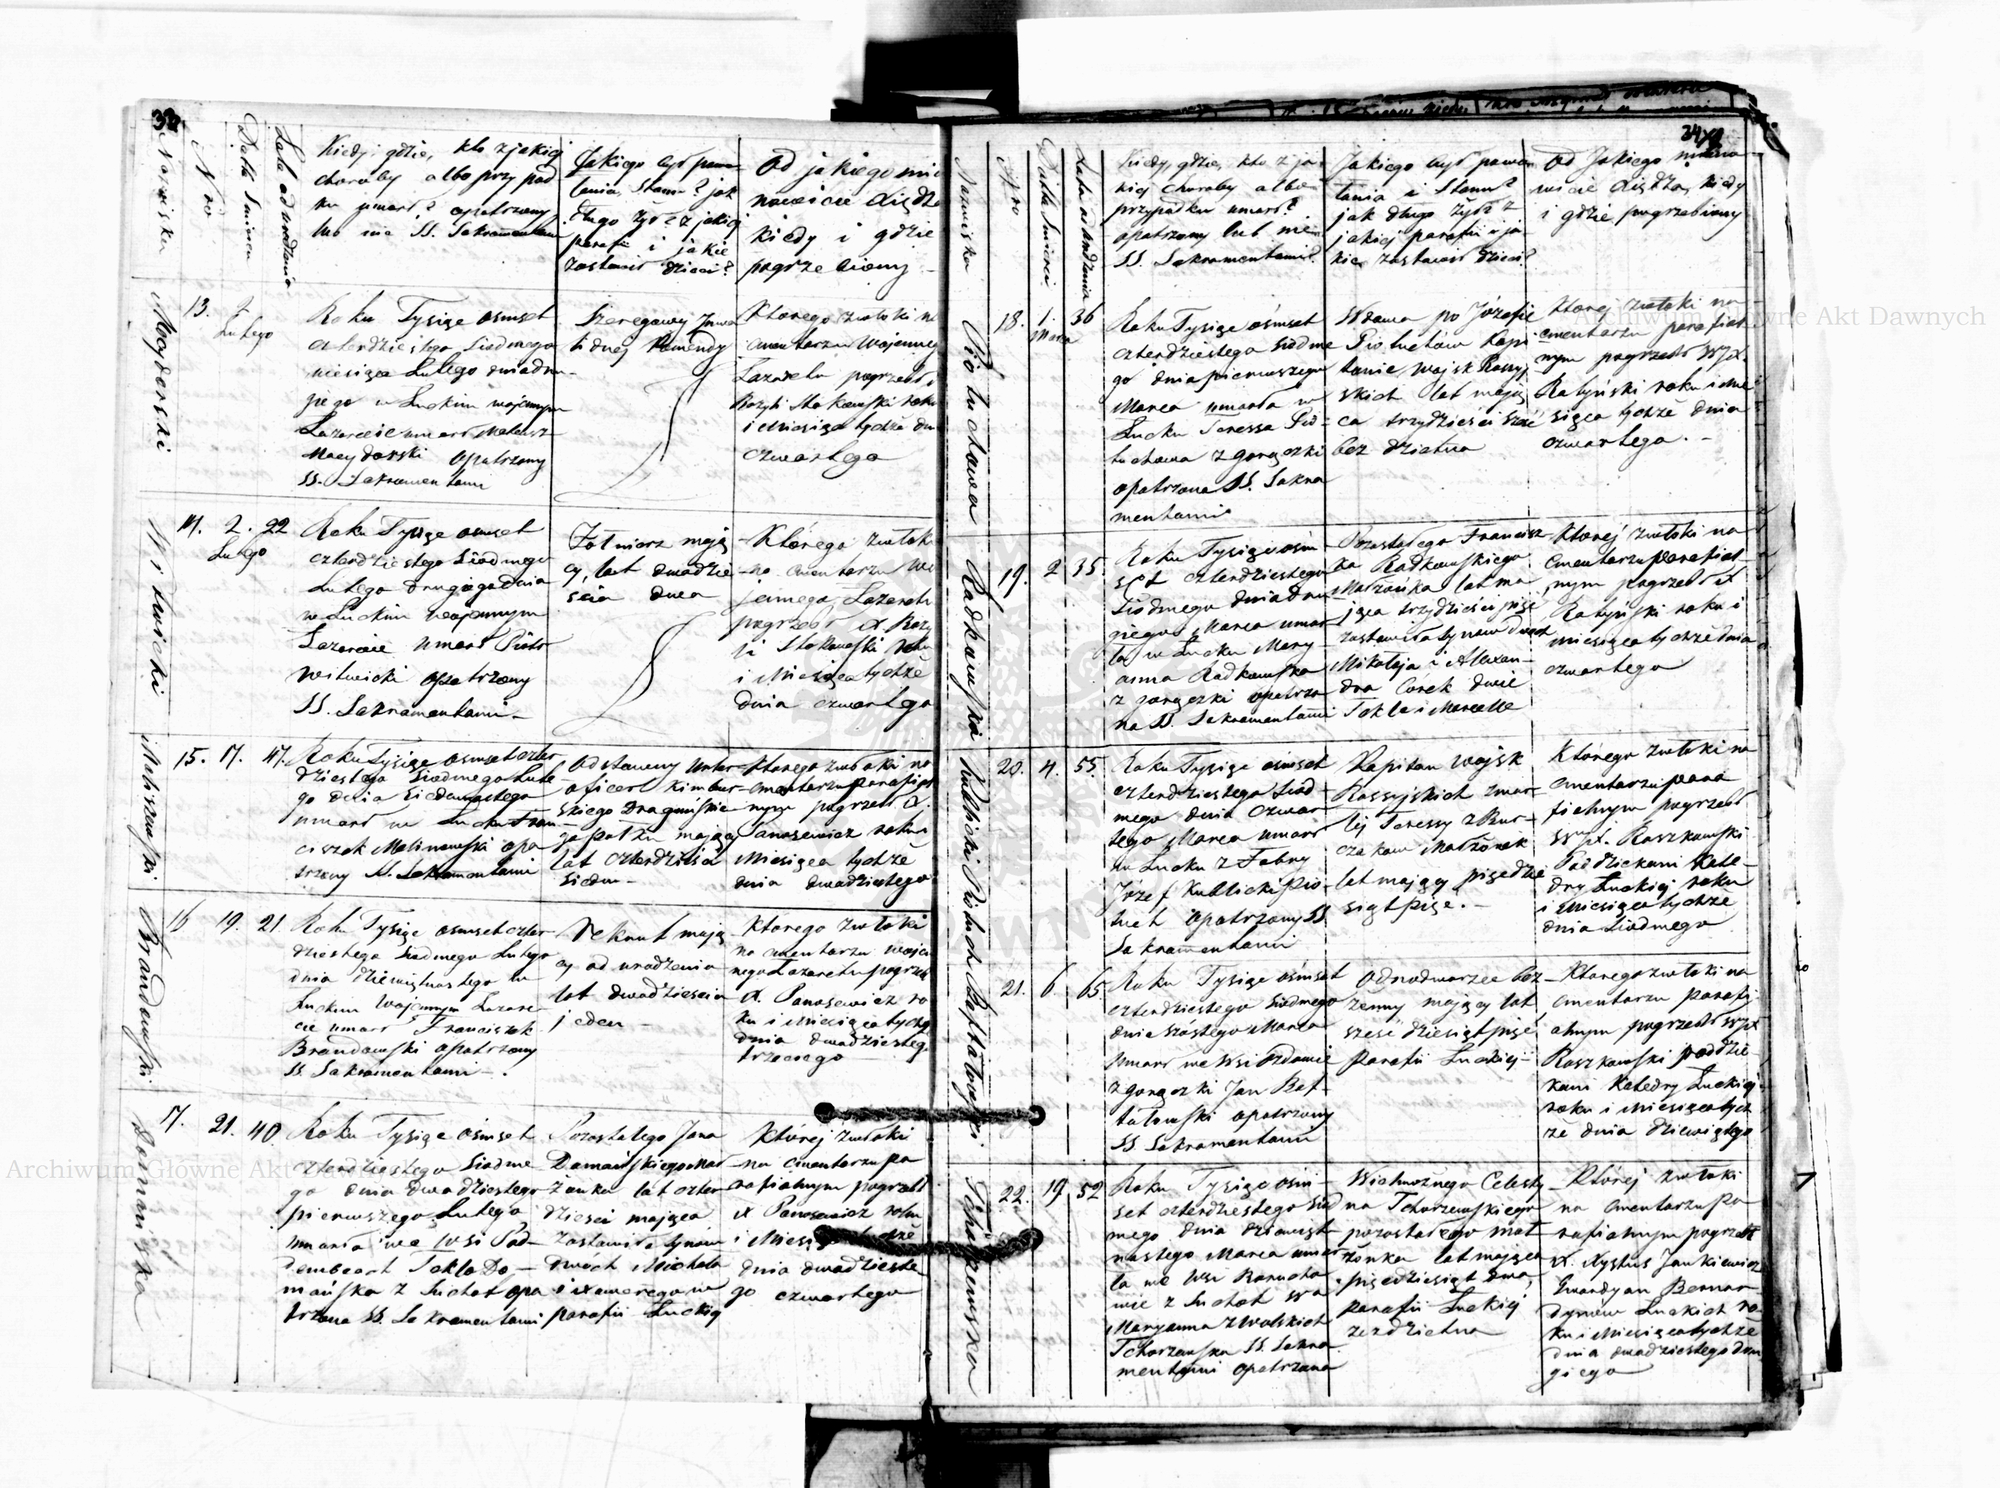 Nazwiska
Nro
Data śmierci
Lata od urodzenia
Kiedy, gdzie, kto z jakiej
choroby albo przy pad
ku umarł? opatrzony
lub nie SS. Sakramentam
Jakiego był powo
łania, Stanu? jak
długo żył? z jakiej
parafii i jakie
zostawił dzieci?
Od jakiego mia
nowicie Xiędz
kiedy i gdzie
pogrzebiony
13.
2
Lutego
Roku Tysiąc osmset
czterdziestego Siodmego
miesiąca Lutego dnia dru
giego w Łuckim wojennym
Lazarecie umarł Mateusz
opatrzony
SS. Sakramentami
Szeregowy Inwa
lidnej Komendy
Ktorego zwłoki n
cmentarzu wojenneg
Lazaretu pogrzebł
roku
i Miesiąca tychże dn
czwartego
Witwicki
14. 2. 22
Lutego
Roku Tysiąc osmset
czterdziestego Siodmego
Lutego drugiego dnia
w Łuckim wojennym
Lazarecie umarł Piotr
Witwicki opatrzony
SS. Sakramentami
Żołnierz mają
cy lat dwadzie
ścia dwa
Którego zwłok
na cmentarzu wo
jennego Lazaret
pogrzebł X. Bazy
li roku
i Miesiąca tychże
dnia czwartego
Malinowski
15. 17. 47.
Roku Tysiąc osmset czter
dziestego Siodmego Lute
go dnia Siedmnastego
umarł w Łucku Fran
ciszek Malinowski opa
trzony SS. Sakramentami
Odstawny Unter
oficer Kinbur
skiego Draguńskie
go połku mający
lat czterdzieści
Siedm
Ktorego zwłoki na
cmentarzu Parafial
nym pogrzebł X.
Panasewicz roku
Miesiąca tychże
dnia dwudziestego
Brandowski
16 19. 21.
Roku Tysiąc osmset czter
dziestego Siodmego Lutego
dnia dziewiętnastego w
Łuckim Wojennym Lazare
cie umarł Franciszek
Brandowski opatrzony
SS. Sakramentami
Rekrut mają
cy od urodzenia
lat dwadzieścia
jeden
Ktorego zwłoki
na cmentarzu woje
nego Lazaretu pogrzeb
X. Panasewicz ro
ku i Miesiąca tychż
dnia dwudziesteg
trzeciego
Domańska
17. 21. 40
Roku Tysiąc osmset
czterdziestego Siodme
go dnia dwudziestego
pierwszego Lutego
umarła we wsi Pod
Tekla Do
mańska z Suchot opa
trzona SS. Sakramentami
Pozostałego Jana
Domańskiego Mał
żonka lat czter
dzieści mająca
zostawiła synów
dwóch Michała
i Xawerego w
parafii Łuckiej
Której zwłoki
na cmentarzu pa
rafialnym pogrzebł
X Panasewicz roku
i Miesiąca tychże
dnia dwudzieste
go czwartego
Nazwiska
Nro
Data śmierci
Lata od urodzenia
Kiedy, gdzie, kto z ja
kiej choroby albo
przypadku umarł?
opatrzony lub nie
SS. Sakramentami?
Jakiego był powo
łania i Stanu?
jak długo żył? z
jakiej parafii i ja
kie zostawił dzieci?
Od Jakiego miano
wicie Xiędza, kiedy
i gdzie pogrzebiony
Piotuchowa
18. 1. 36
Marca
Roku Tysiąc ośmset
czterdziestego Siodme
go dnia pierwszego
Marca umarła w
Łucku Teressa Pio
tuchowa z gorączki
opatrzona SS. Sakra
mentami
Wdowa po Józefie
Piotuchów Kapi
tanie Wojsk Rossyj
skich lat mają
ca trzydzieści sześć
bez dzietna
Ktorej zwłoki na
cmentarzu parafial
nym pogrzebł WJX.
Ratyński roku i Mie
siąca tychże dnia
czwartego.
Radkowska
19. 2 35
Roku Tysiąc ośm
set czterdziestego
Siodmego dnia dru
giego Marca umar
ła w Łucku Mary
anna Radkowska
z gorączki opatrzo
na SS. Sakramentami
Pozostałego Francisz
ka Radkowskiego
Małżonka lat ma
jąca trzydzieści pięć
zostawiła synow dwoch
Mikołaja i Alexan
dra Córek dwie
Teklę i Marcellę
Ktorej zwłoki na
cmentarzu parafial
nym pogrzebł X
Ratyński roku i
miesiąca tychże dnia
czwartego
Kublicki Piotuch
20. 4. 55.
Roku Tysiąc ośmset
czterdziestego Siod
mego dnia czwar
tego Marca umarł
w Łucku z Febry
Józef Kublicki Pio
tuch opatrzony SS
Sakramentami
Kapitan Wojsk
Rossyjskich zmar
łej Teressy z Kur
czakow Małżonek
lat mający pięćdzie
siąt pięć.
Którego zwłoki na
cmentarzu para
fialnym pogrzebł
WJX. Raszkowski
Poddziekani Kate
dry Łuckiej roku
i Miesiąca tychże
dnia Siodmego
21. 6. 65
Roku Tysiąc ośmset
czterdziestego Siodmego
dnia szostego Marca
umarł we wsi
z gorączki Jan
opatrzony
SS Sakramentami
Odnodworzec bez
zenny mający lat
sześćdziesiąt pięć
Parafii Łuckiej
Ktorego zwłoki na
cmentarzu parafi
alnym pogrzebł WJX
Raszkowski poddzie
kani Katedry Łuckiej
roku i Miesiąca tych
że dnia dziewiątego
22. 19 52
Roku Tysiąc ośm
set czterdziestego Siod
mego dnia dziewięt
nastego Marca umar
ła we Wsi
z Suchot
Maryanna z Wolskich
SS. Sakra
mentami opatrzona
Wielmożnego Celesty
na
pozostałego Mał
żonka lat mająca
pięćdziesiąt dwa,
parafii Łuckiej
Której zwłoki
na cmentarzu pa
rafialnym pogrzebł
X. Xystus Jankiewicz
Gwardyan Bernar
dynow Łuckich ro
ku i Miesiąca tychże
dnia dwudziestego dru
giego
Archiwum Główne Akt Dawnych
Archiwum Główne Akt Dawnych